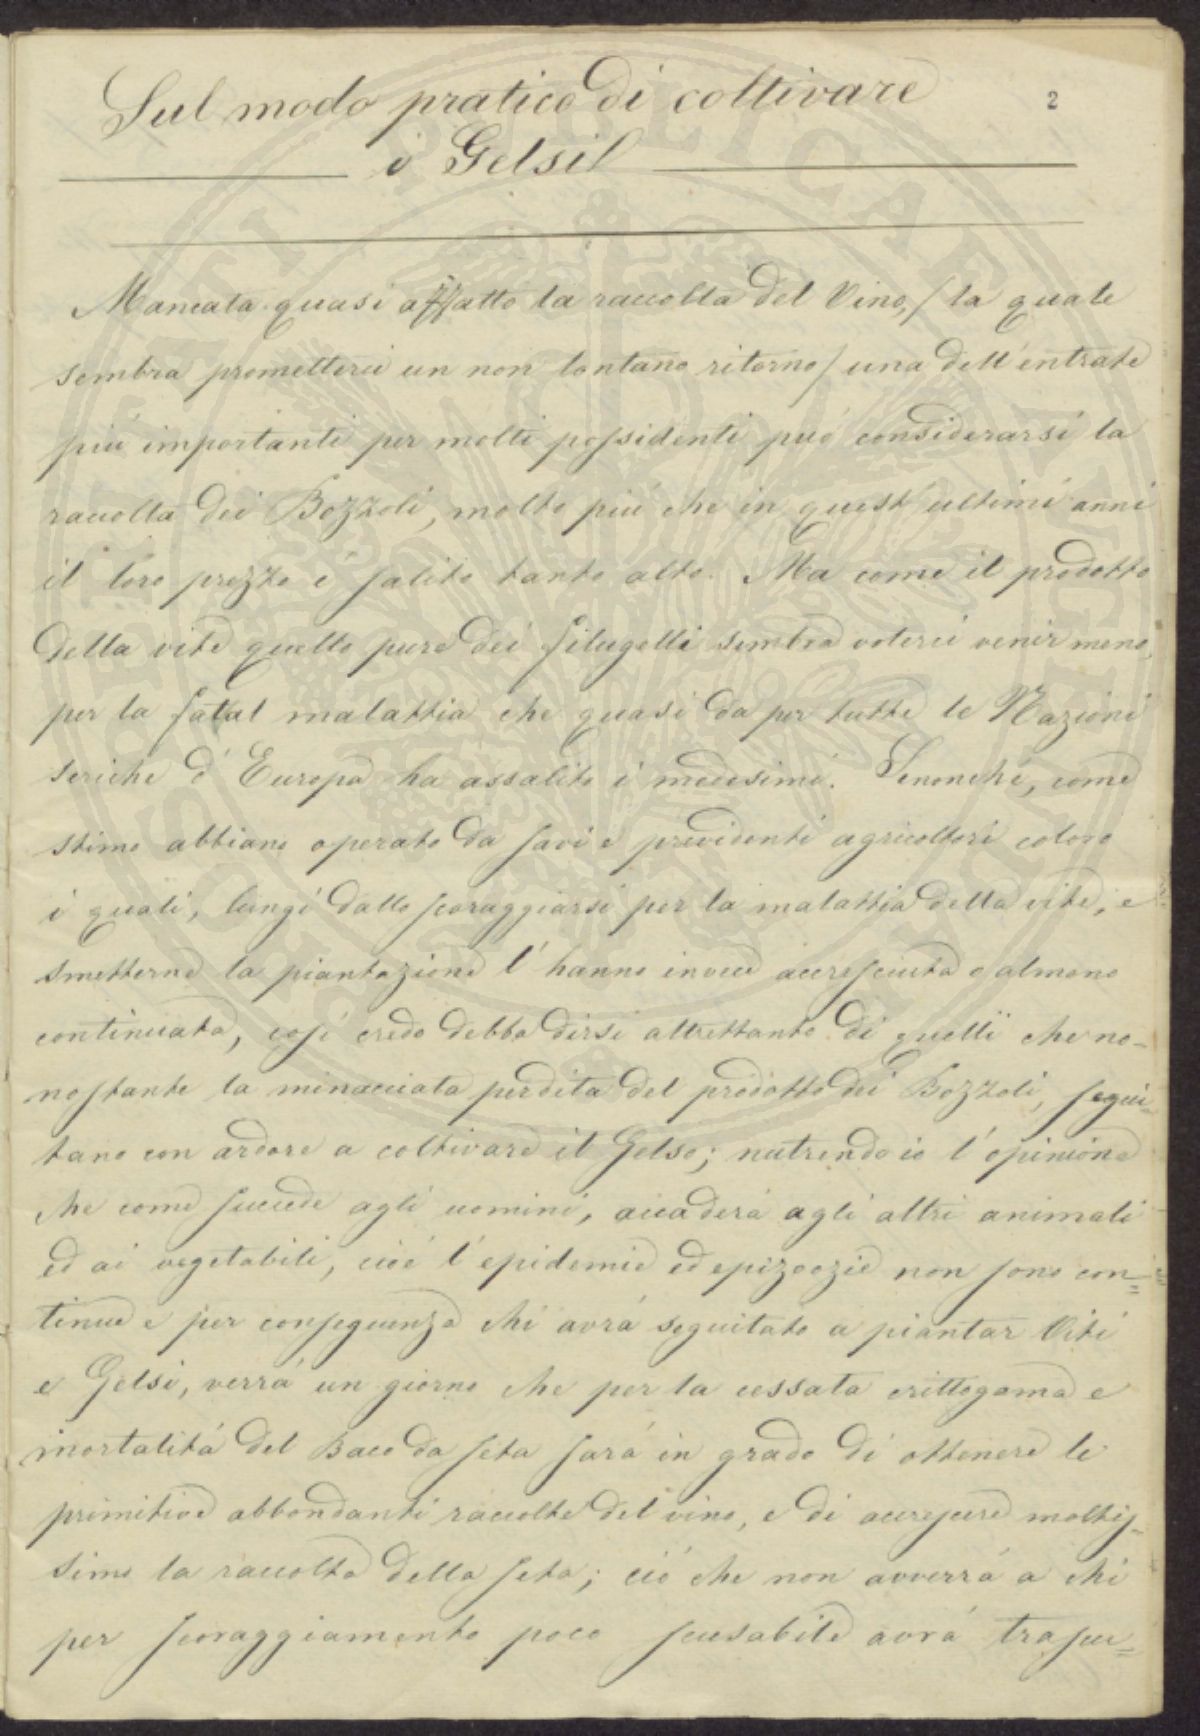 Sul modo pratico di coltivare
2
i Gelsi
Mancata quasi affatto la raccolta del Vino, / la quale
sembra prometterci un non lontano ritorno / una dell'entrate
più importanti per molti possidenti può considerarsi la
raccolta dei Bozzoli, molto più che in quest'ultimi anni
il loro prezzo é salito tanto alto. Ma come il prodotto
della vite quello pure dei filugelli sembra volerci venir meno,
per la fatal malattia che quasi da per tutte le Nazioni
seriche d'Europa ha assalito i medesimi. Senonché, come
stimo abbiano operato da savi e previdenti agricoltori coloro
i quali, lungi dallo scoraggiarsi per la malattia della vite, e
smetterne la piantazione l'hanno invece accresciuta o almeno
continuata, così credo debba dirsi altrettanto di quelli che no-
nostante la minacciata perdita del prodotto dei Bozzoli, segui-
tano con ardore a coltivare il Gelso; nutrendo io l'opinione
che come succede agli uomini, accaderá agli altri animali
ed ai vegetabili, cioé l'epidemie ed epizoozie non sono con=
tinue e per conseguenza chi avrá seguitato a piantar Viti
e Gelsi, verrá un giorno che per la cessata crittogama e
mortalitá del Baco da seta sará in grado di ottenere le
primitive abbondanti raccolte del vino, e di accrescere moltis=
simo la raccolta della seta; ció che non avverrá a chi
per scoraggiamento poco scusabile avrá trascu=